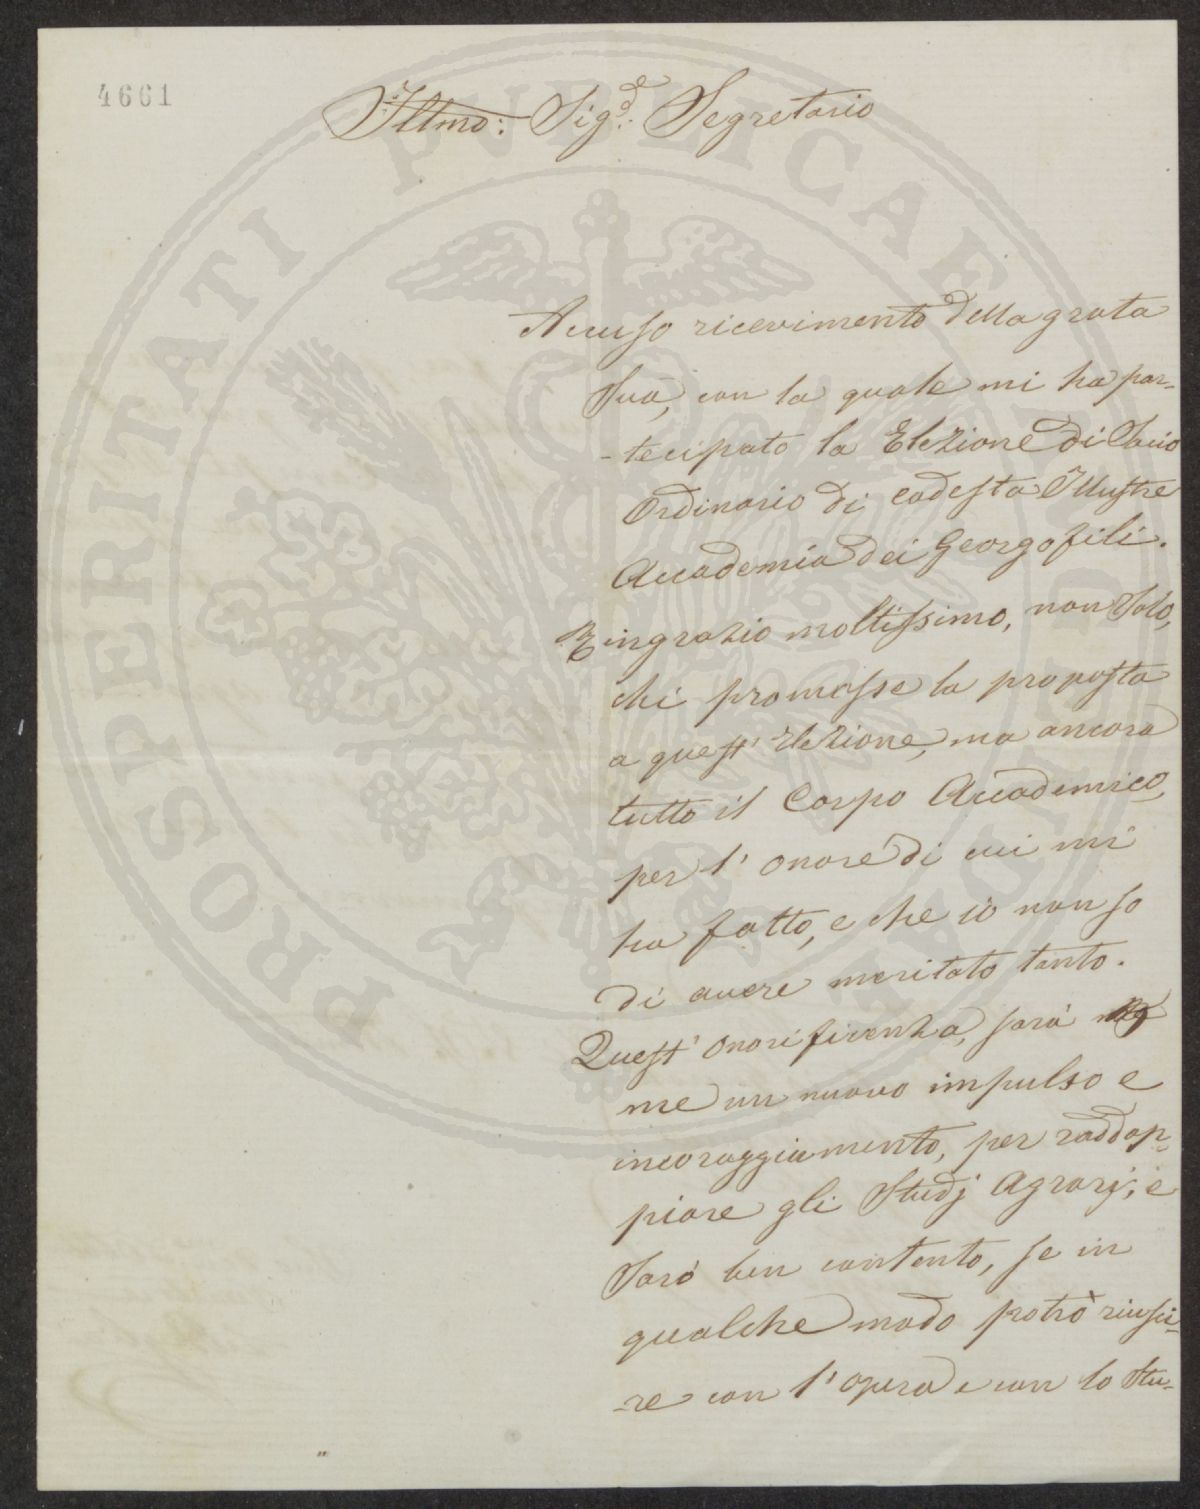 4661
Illmo: Sigr: Segretario
Accuso ricevimento della grata
Sua, con la quale mi ha par-
-tecipato la Elezione di Socio
Ordinario di codesta Illustre
Accademia dei Georgofili.
Ringrazio moltissimo, non solo,
chi promosse la proposta
a quest' Elezione, ma ancora
tutto il Corpo Accademico,
per l' onore di cui mi
ha fatto, e che io non so
di avere meritato tanto.
Quest' onorificenza, sarà
me un nuovo impulso e
incoraggiamento, per raddop-
piare gli Studj Agrarj; e
Sarò ben contento, se in
qualche modo potrò riusci-
-re con l' opera e con lo Stu-
PROSPERITATI PUBLICAE